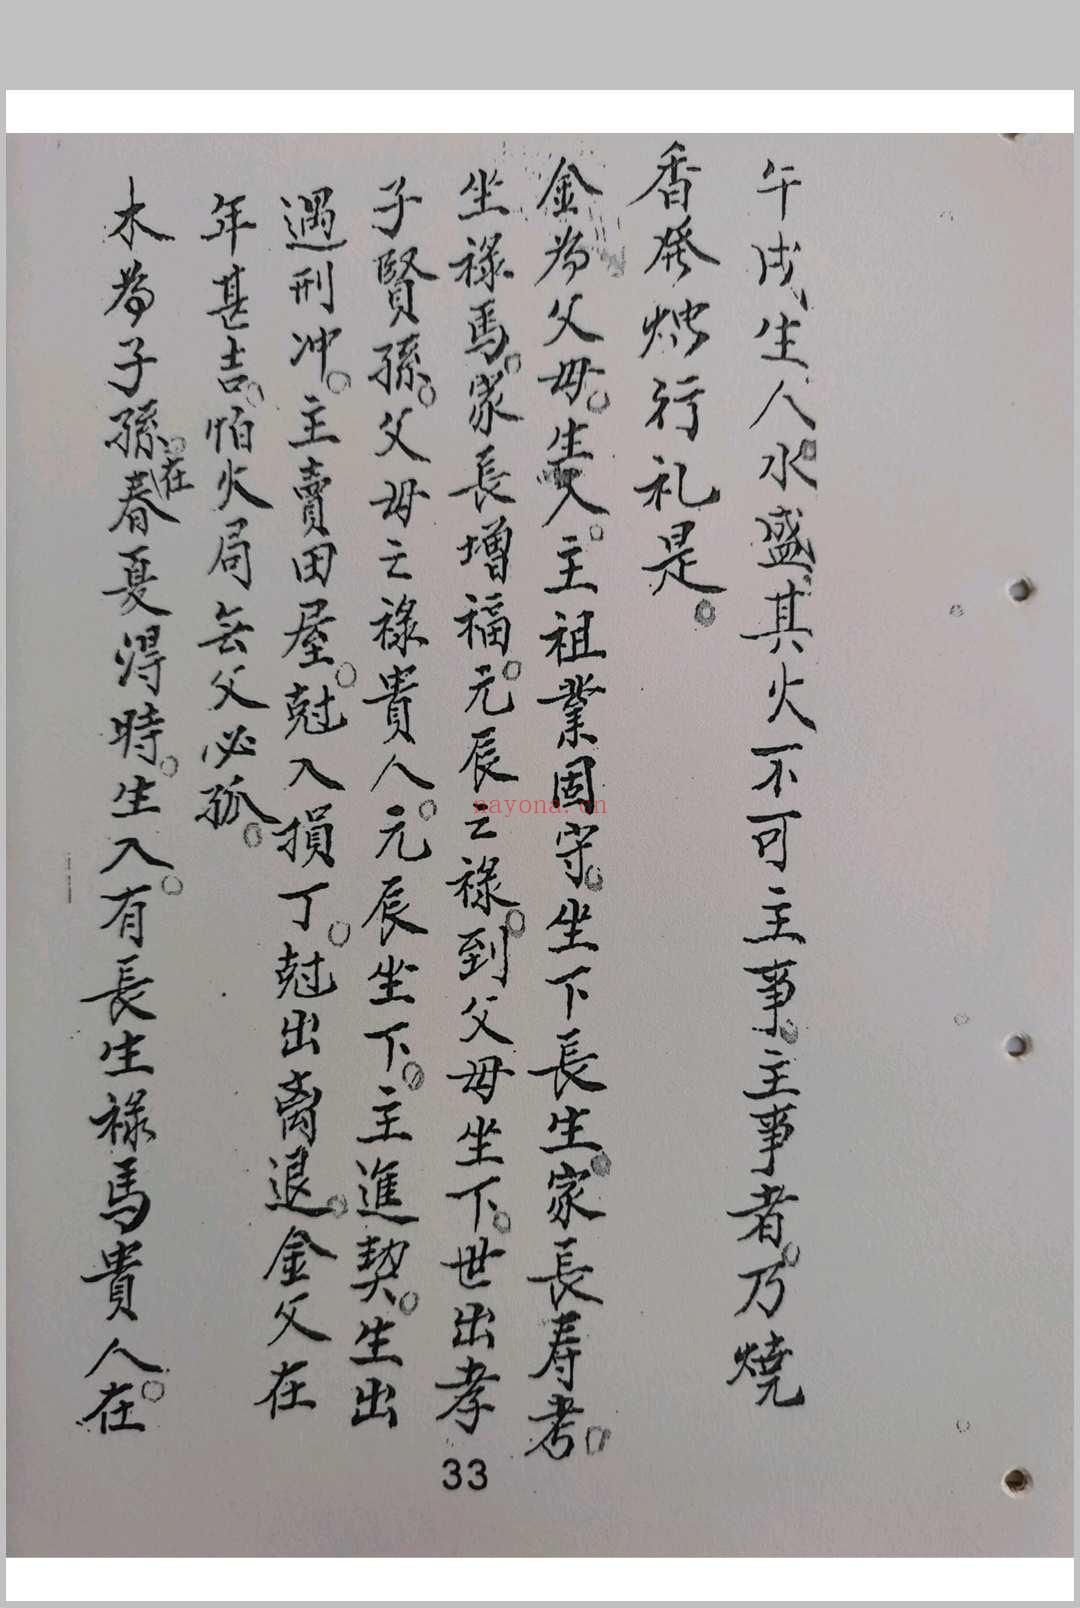 午戌生人水盛其火不可主事主事者。乃燒
香發燭行礼是。
金為父母。生入。主祖業固守。坐下長生。家長寿考。
坐禄馬。家長增福。元辰亡禄。到父母坐下。世出孝
子賢孫。父母亡禄貴人。元辰坐下。主進契。生出
遇刑冲。主賣田屋。尅入損丁。尅出离退。金父在
年甚吉。怕火局無父必孤。
木為子孫。在春夏得時。生入。有長生禄馬貴人。在
33
nayona.cn